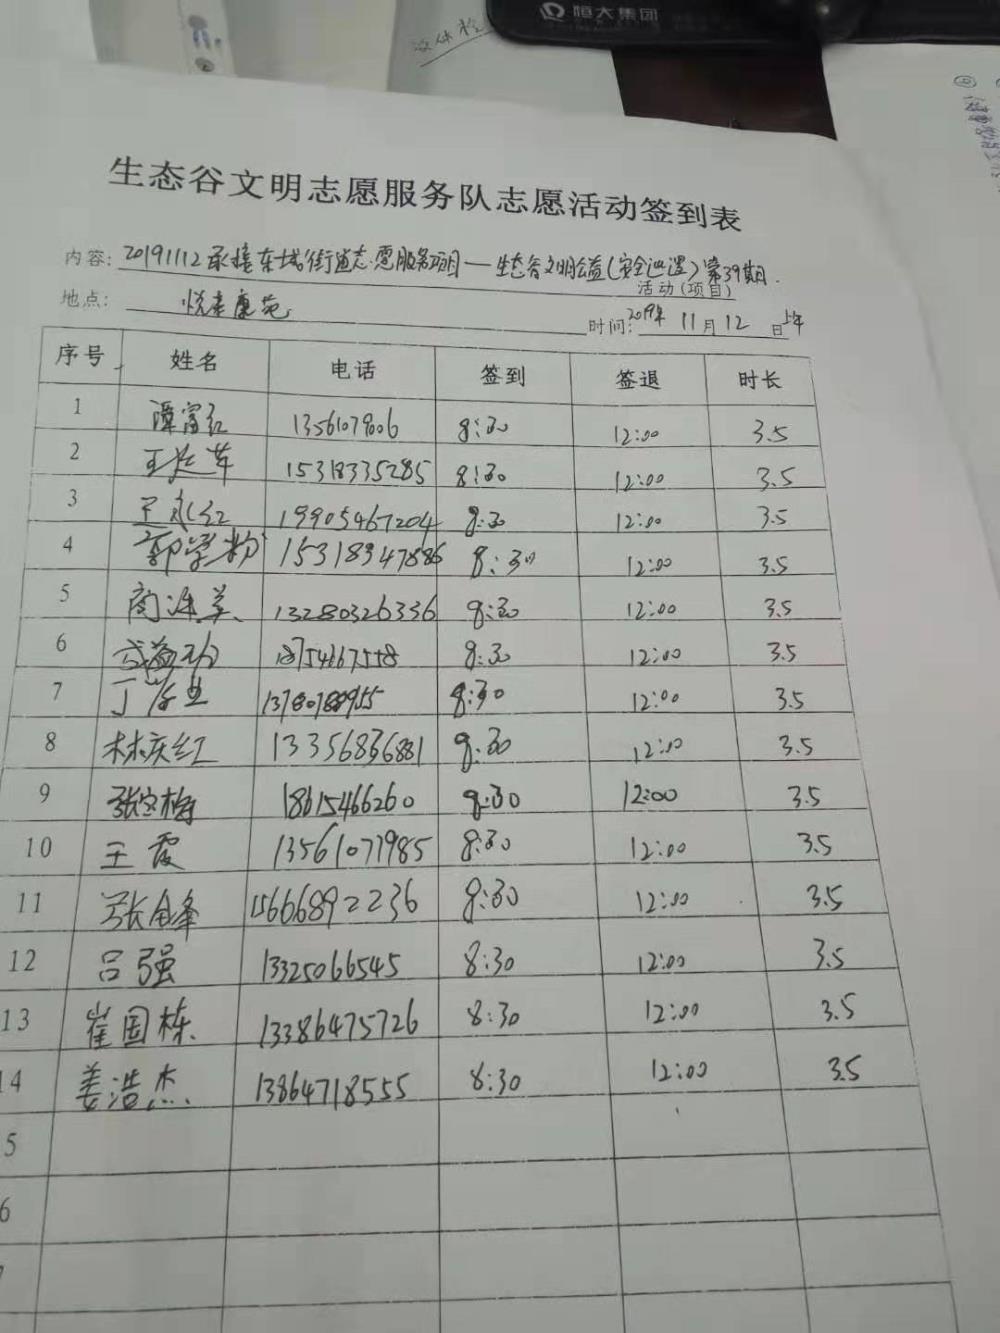 恒大集团
生态谷文明志愿服务队志愿活动签到表
内容: 20191112承接东城街道志愿服务项目——生态谷文明公益(安全巡逻)第39期.
活动(项目)
地点: 悦来康苑
时间: 2019年 11月 12 日 上午
序号 姓名 电话 签到 签退 时长
1 谭富红 8:30 12:00 3.5
2 15318335285 8:30 12:00 3.5
3 19905467204 8:30 12:00 3.5
4 郭学粉 15318347886 8:30 12:00 3.5
5 13280326336 8:30 12:00 3.5
6 8:30 12:00 3.5
7 8:30 12:00 3.5
8 林庆红 13356836881 8:30 12:00 3.5
9 张宝梅 18615466260 8:30 12:00 3.5
10 王霞 13561077985 8:30 12:00 3.5
11 张金峰 15666892236 8:30 12:00 3.5
12 吕强 13325066545 8:30 12:00 3.5
13 崔国栋 13386475726 8:30 12:00 3.5
14 姜浩杰 13864718555 8:30 12:00 3.5
5
6
7